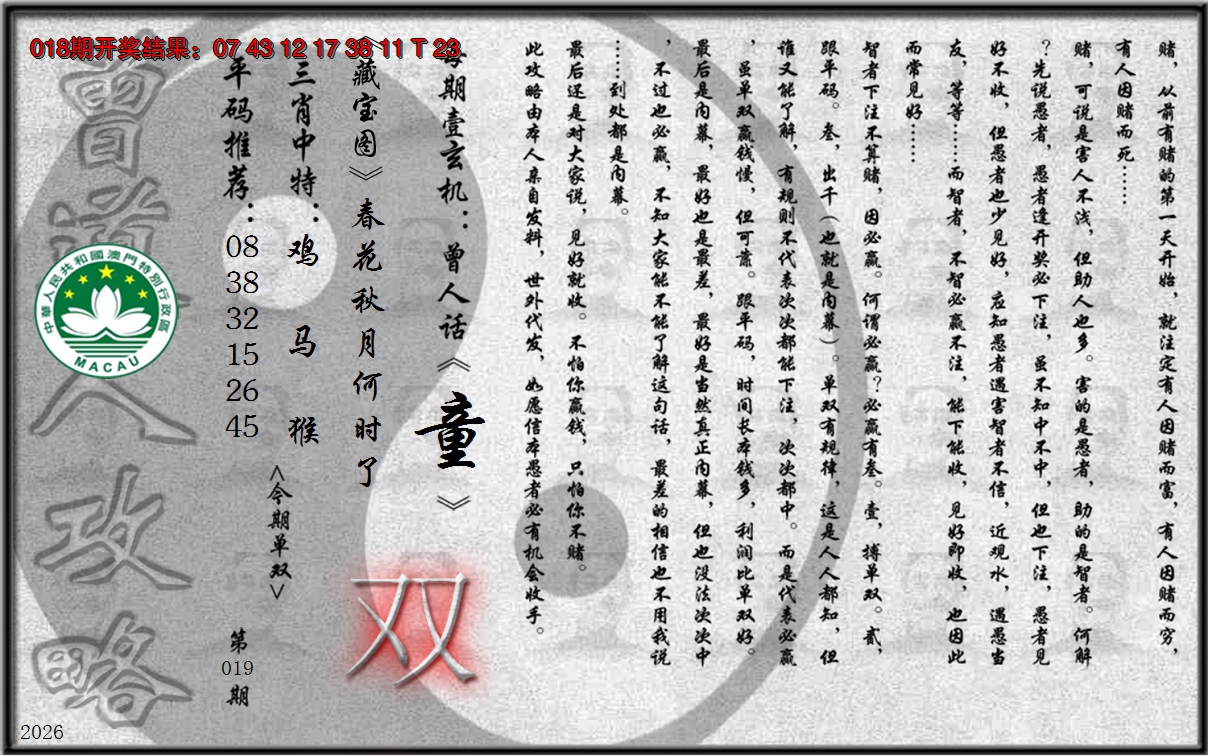 018期开奖结果：07 43 12 17 38 11 T 23
赌，从前有赌的第一天开始，就注定有人因赌而富，有人因赌而穷，
有人因赌而死……
赌，可说是害人不浅，但助人也多。害的是愚者，助的是智者。何解
？先说愚者，愚者逢开奖必下注，虽不知中不中，但也下注，愚者见
好不收，但愚者也少见好，应知愚者遇害智者不信，近观水，遇愚当
友，等等……而智者，不智必赢不注，能下能收，见好即收，也因此
而常见好……
智者下注不算赌，因必赢。何谓必赢？必赢有叁。壹，搏单双。贰，
跟平码。叁，出千（也就是内幕）。单双有规律，这是人人都知，但
谁又能了解，有规则不代表次次都能下注，次次都中。而是代表必赢
，虽单双赢钱慢，但可靠。跟平码，时间长本钱多，利润比单双好。
最后是内幕，最好也是最差，最好是当然真正内幕，但也没法次次中
，不过也必赢，不知大家能不能了解这句话，最差的相信也不用我说
……到处都是内幕。
最后还是对大家说，见好就收。不怕你赢钱，只怕你不赌。
此攻略由本人亲自发料，世外代发，如愿信本愚者必有机会收手。
每期壹玄机：曾人话《童》
《藏宝图》春花秋月何时了
双
三肖中特：鸡 马 猴
<今期单双>
平码推荐：08 38 32 15 26 45
第019期
曾道人攻略
中華人民共和國澳門特別行政區
MACAU
2026